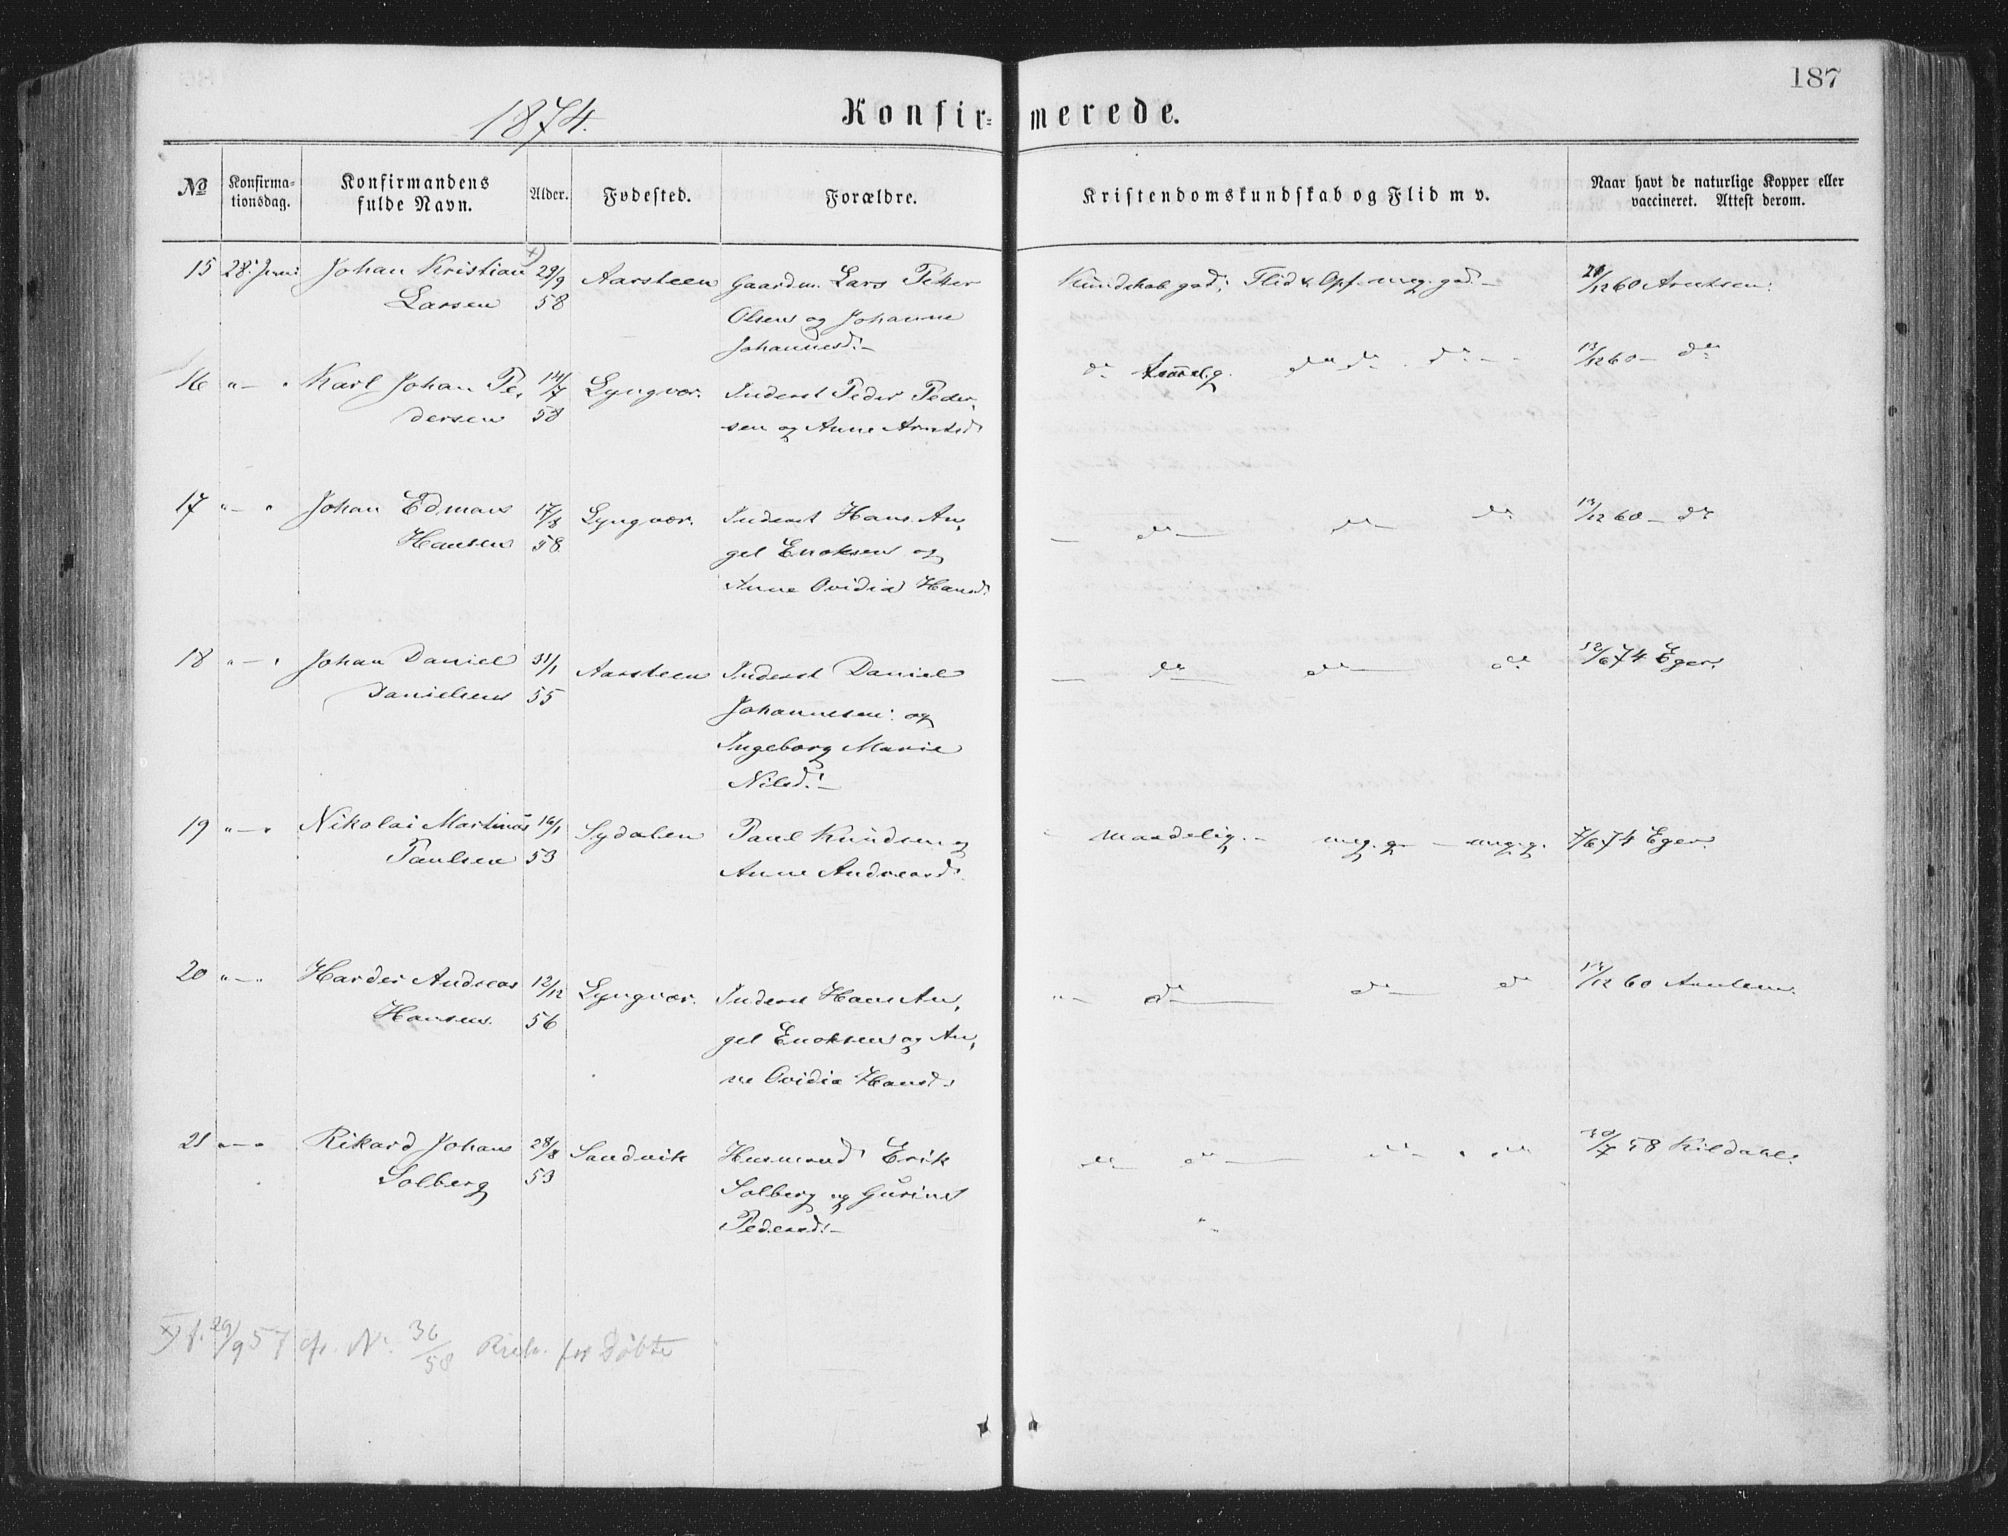 187
1874.
Konfir=merede.
No
Konfirma=
tionsdag.
Konfirmandens
fulde Navn.
Alder.
Fødested.
Forældre.
Kristendomskundskab og Flid m v.
Naar havt de naturlige Kopper eller
vaccineret. Attest derom.
15 28' Juni Johan Kristian x) 29/9 Aarsteen Gaardm. Lars Peter Kundskab god; Flid & Opf. meg. god. — /12 60 Arntsen.
Larsen 58 Olsen og Johanne
Johannesd. —
16 " — " Karl Johan Pe, 14/7 Lyngvær. Inderst Peder Peder, do do do do 13/12 60 — do
dersen 58 sen og Anne Arntsd.
17 " — " Johan Edman 17/8 Lyngvær. Inderst Hans An, — do — do — do 13/12 60 — do
Hansen 58 gel Enoksen og
Anne Ovidia Hansd.
18 " — " Johan Daniel 31/1 Aarsteen Inderst Daniel — do — do — do 12/6 74 Eger.
Danielsen 55 Johannesen og
Ingeborg Marie
Nilsd. —
19 " — " Nikolai Martinus 16/1 Sydalen Paul Knudsen og maadelig. — meg. g. — meg. g. 7/6 74 Eger.
Paulsen 53 Anne Andreasd.
20 " — " Harder Andreas 12/12 Lyngvær. Inderst Hans An, " — do — do — do 13/12 60 Arntsen.
Hansen. 56 gel Enoksen og An,
ne Ovidia Hansd.
21 " — " Rikard Johan 28/8 Sandvik Husmand Erik do — do — do do 30/7 58 Kildahl.
Solberg 53 Solberg og Gurine
Pedersd. —
x) f. 29/9 57 cfr. N. 36/58 for Døbte